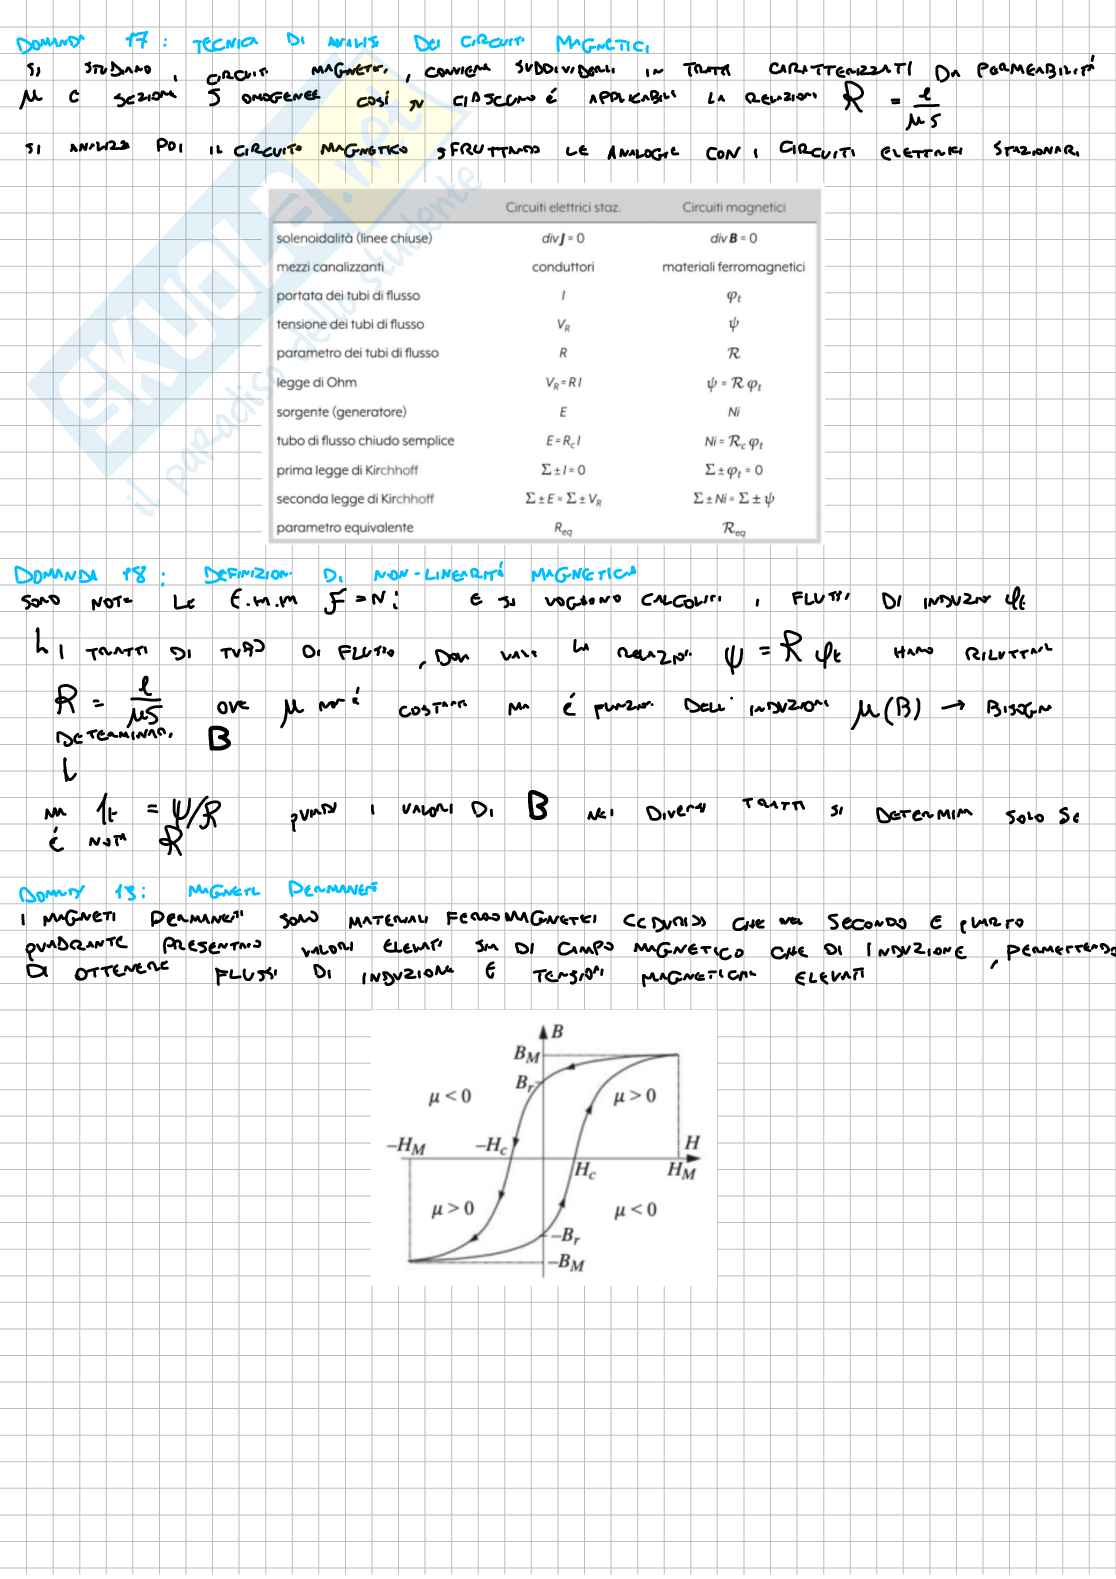 DOMANDA 17: TECNICA DI ANALISI DEI CIRCUITI MAGNETICI
SI STUDIANO I CIRCUITI MAGNETICI, CONVIENE SUDDIVIDERLI IN TRATTI CARATTERIZZATI DA PERMEABILITÁ
μ E SEZIONE S OMOGENEE COSÍ SU CIASCUNO É APPLICABILE LA RELAZIONE R = l/μS
SI ANALIZZA POI IL CIRCUITO MAGNETICO SFRUTTANDO LE ANALOGIE CON I CIRCUITI ELETTRICI STAZIONARI
Circuiti elettrici staz. Circuiti magnetici
solenoidalità (linee chiuse) div J = 0 div B = 0
mezzi canalizzanti conduttori materiali ferromagnetici
portata dei tubi di flusso I φt
tensione dei tubi di flusso VR ψ
parametro dei tubi di flusso R R
legge di Ohm VR = R I ψ = R φt
sorgente (generatore) E Ni
tubo di flusso chiudo semplice E = Rc I Ni = Rc φt
prima legge di Kirchhoff Σ ± I = 0 Σ ± φt = 0
seconda legge di Kirchhoff Σ ± E = Σ ± VR Σ ± Ni = Σ ± ψ
parametro equivalente Req Req
DOMANDA 18: DEFINIZIONE DI NON-LINEARITÁ MAGNETICA
SONO NOTE LE F.M.M F = Ni E SI VOGLIONO CALCOLARE I FLUSSI DI INDUZIONE φt
I TRATTI DI TUBO DI FLUSSO, DOVE VALE LA RELAZIONE ψ = R φt HANNO RILUTTANZE
R = l/μS OVE μ NON É COSTANTE MA É FUNZIONE DELL'INDUZIONE μ(B) → BISOGNA
DETERMINARE B
MA φt = ψ/R QUINDI I VALORI DI B NEI DIVERSI TRATTI SI DETERMINA SOLO SE
É NOTA R
DOMANDA 19: MAGNETI PERMANENTI
I MAGNETI PERMANENTI SONO MATERIALI FERROMAGNETICI CHE NEL SECONDO E QUARTO
QUADRANTE PRESENTANO VALORI ELEVATI SIA DI CAMPO MAGNETICO CHE DI INDUZIONE, PERMETTENDO
DI OTTENERE FLUSSI DI INDUZIONE E TENSIONI MAGNETICHE ELEVATI
B
BM
Br
μ < 0 μ > 0
−HM −Hc H
Hc HM
μ > 0 μ < 0
−Br
−BM
SKUOLA.net
il paradiso dello studente